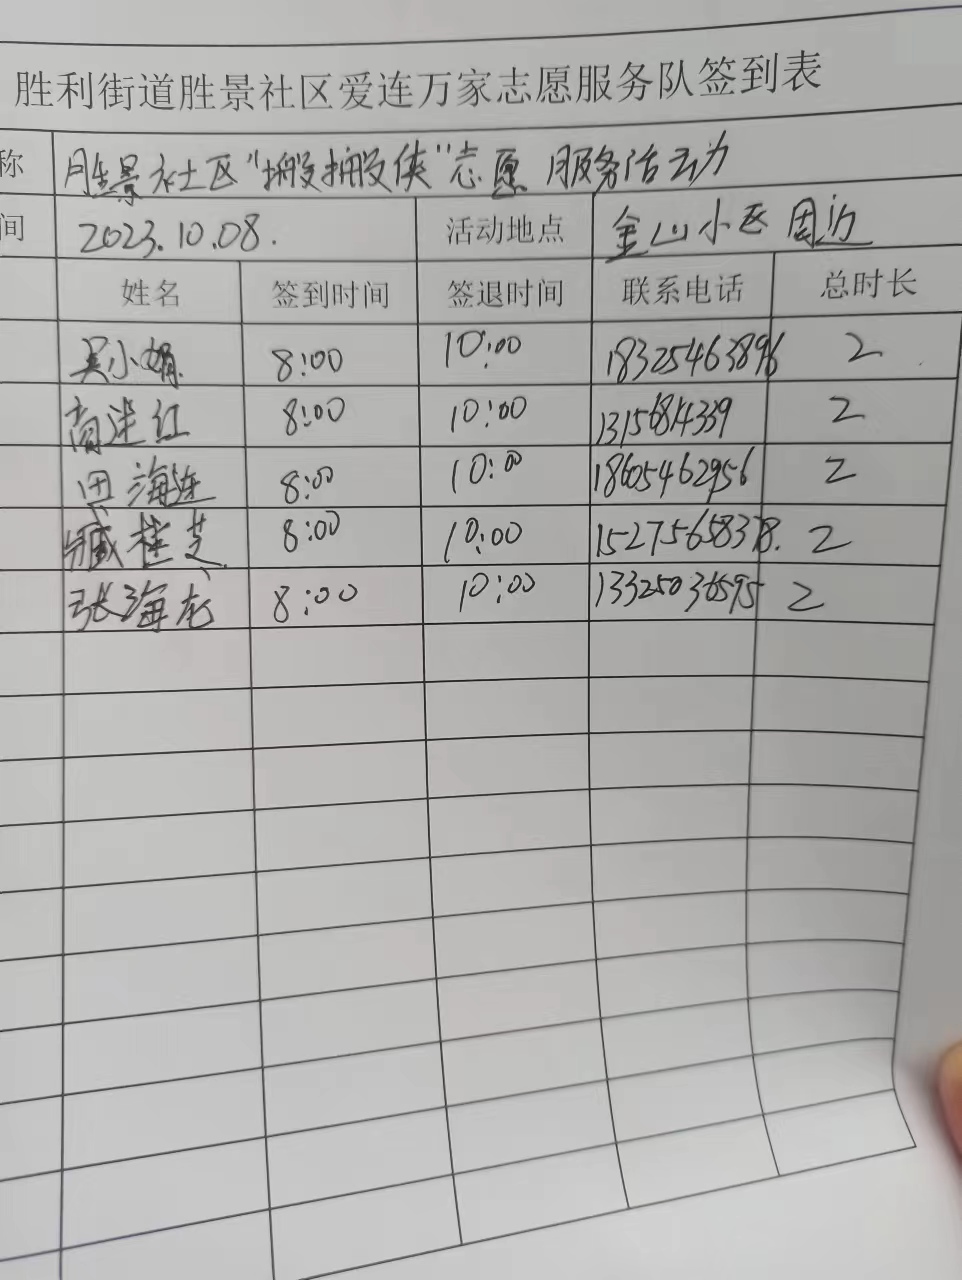 胜利街道胜景社区爱连万家志愿服务队签到表
称 胜景社区"搬搬侠"志愿服务活动
间 2023.10.08. 活动地点 金山小区周边
姓名 签到时间 签退时间 联系电话 总时长
吴小娟 8:00 10:00 18325463896 2
高迷红 8:00 10:00 13156814339 2
田海连 8:00 10:00 18605462956 2
臧桂芝 8:00 10:00 15275658378. 2
张海龙 8:00 10:00 13325036595 2